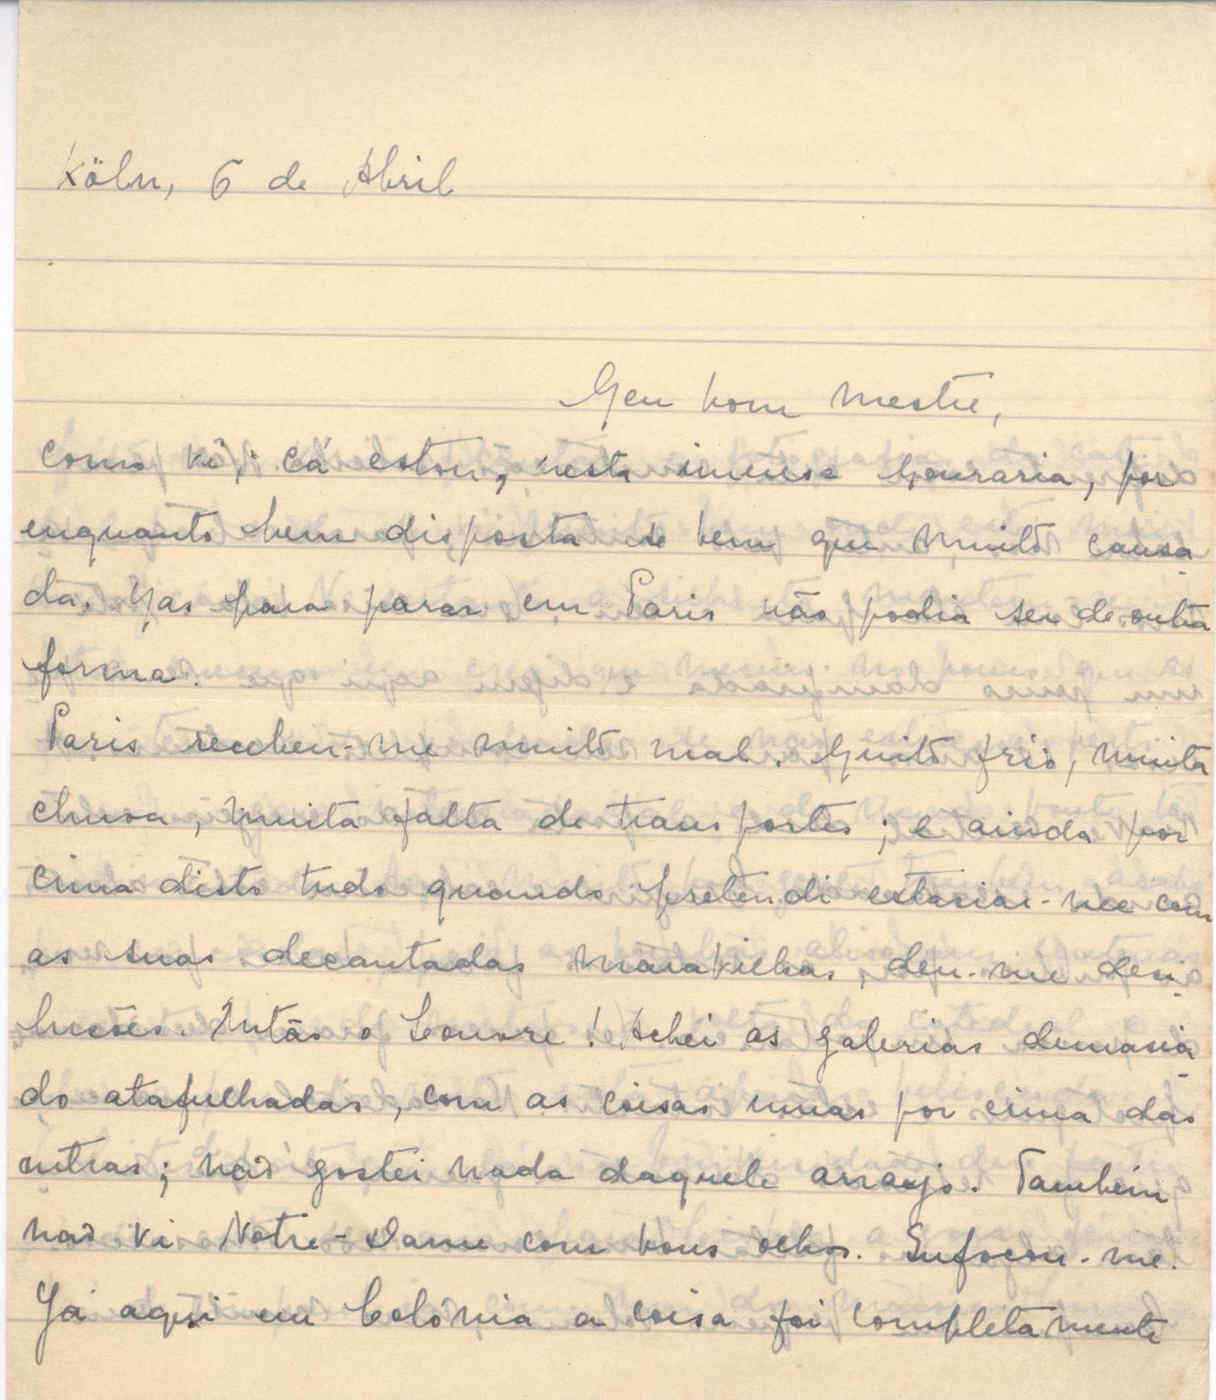 Köln, 6 de Abril
Meu bom Mestre,
como vê, cá estou, nesta imensa Mouraria, por
enquanto bem disposta se bem que muito cansa-
da. Mas para parar em Paris não podia ser de outra
forma.
Paris recebeu-me muito mal. Muito frio, muita
chuva, muita falta de transportes; e ainda por
cima disto tudo quando pretendi extasiar-me com
as suas decantadas maravilhas, deu-me desi-
lusões. Então o Louvre! Achei as galerias demasia-
do atafulhadas, com as coisas umas por cima das
outras; não gostei nada daquele arranjo. Também
não vi Notre-Dame com bons olhos. Sufocou-me.
Já aqui em Colónia a coisa foi completamente